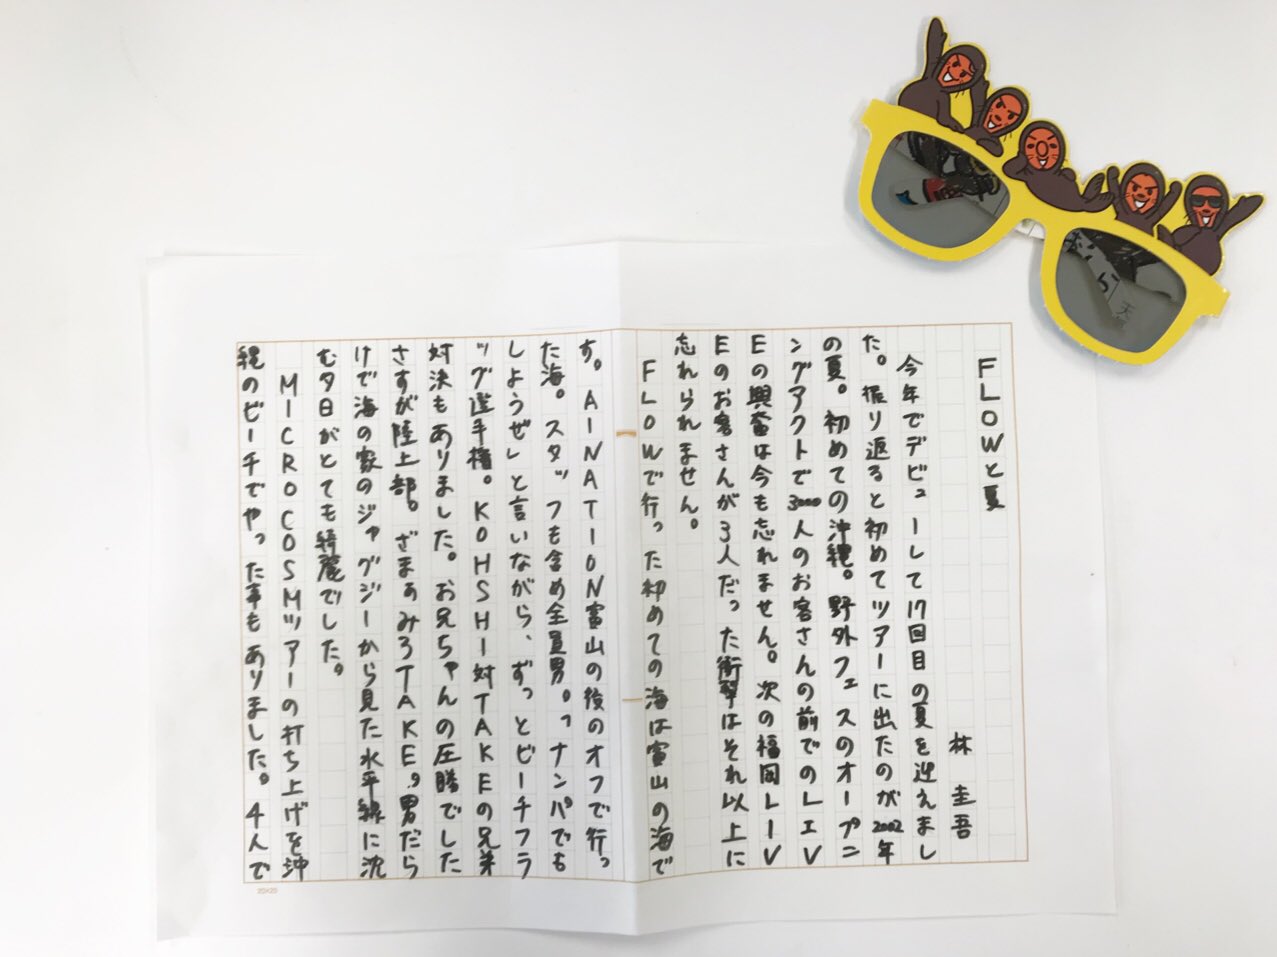 FLOWと夏
林圭吾
今年でデビューして17回目の夏を迎えまし
た。振り返ると初めてツアーに出たのが2002年
の夏。初めての沖縄。野外フェスのオープニ
ングアクトで3000人のお客さんの前でのLIV
Eの興奮は今も忘れません。次の福岡LIV
Eのお客さんが3人だった衝撃はそれ以上に
忘れられません。
FLOWで行った初めての海は富山の海で
す。AINATION富山の後のオフで行っ
た海。スタッフも含め全員男。「ナンパでも
しようぜ」と言いながら、ずっとビーチフラ
ッグ選手権。KOHSHI対TAKEの兄弟
対決もありました。お兄ちゃんの圧勝でした
さすが陸上部。ざまぁみろTAKE。男だら
けで海の家のジャグジーから見た水平線に沈
む夕日がとても綺麗でした。
MICROCOSMツアーの打ち上げを沖
縄のビーチでやった事もありました。4人で
20×20
天